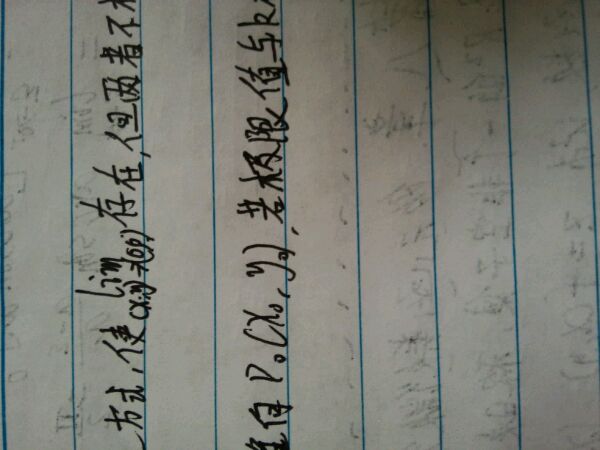 方式,使lim(x,y)→(0,0)存在,但两者不
向P₀(x₀,y₀),若极限值与k